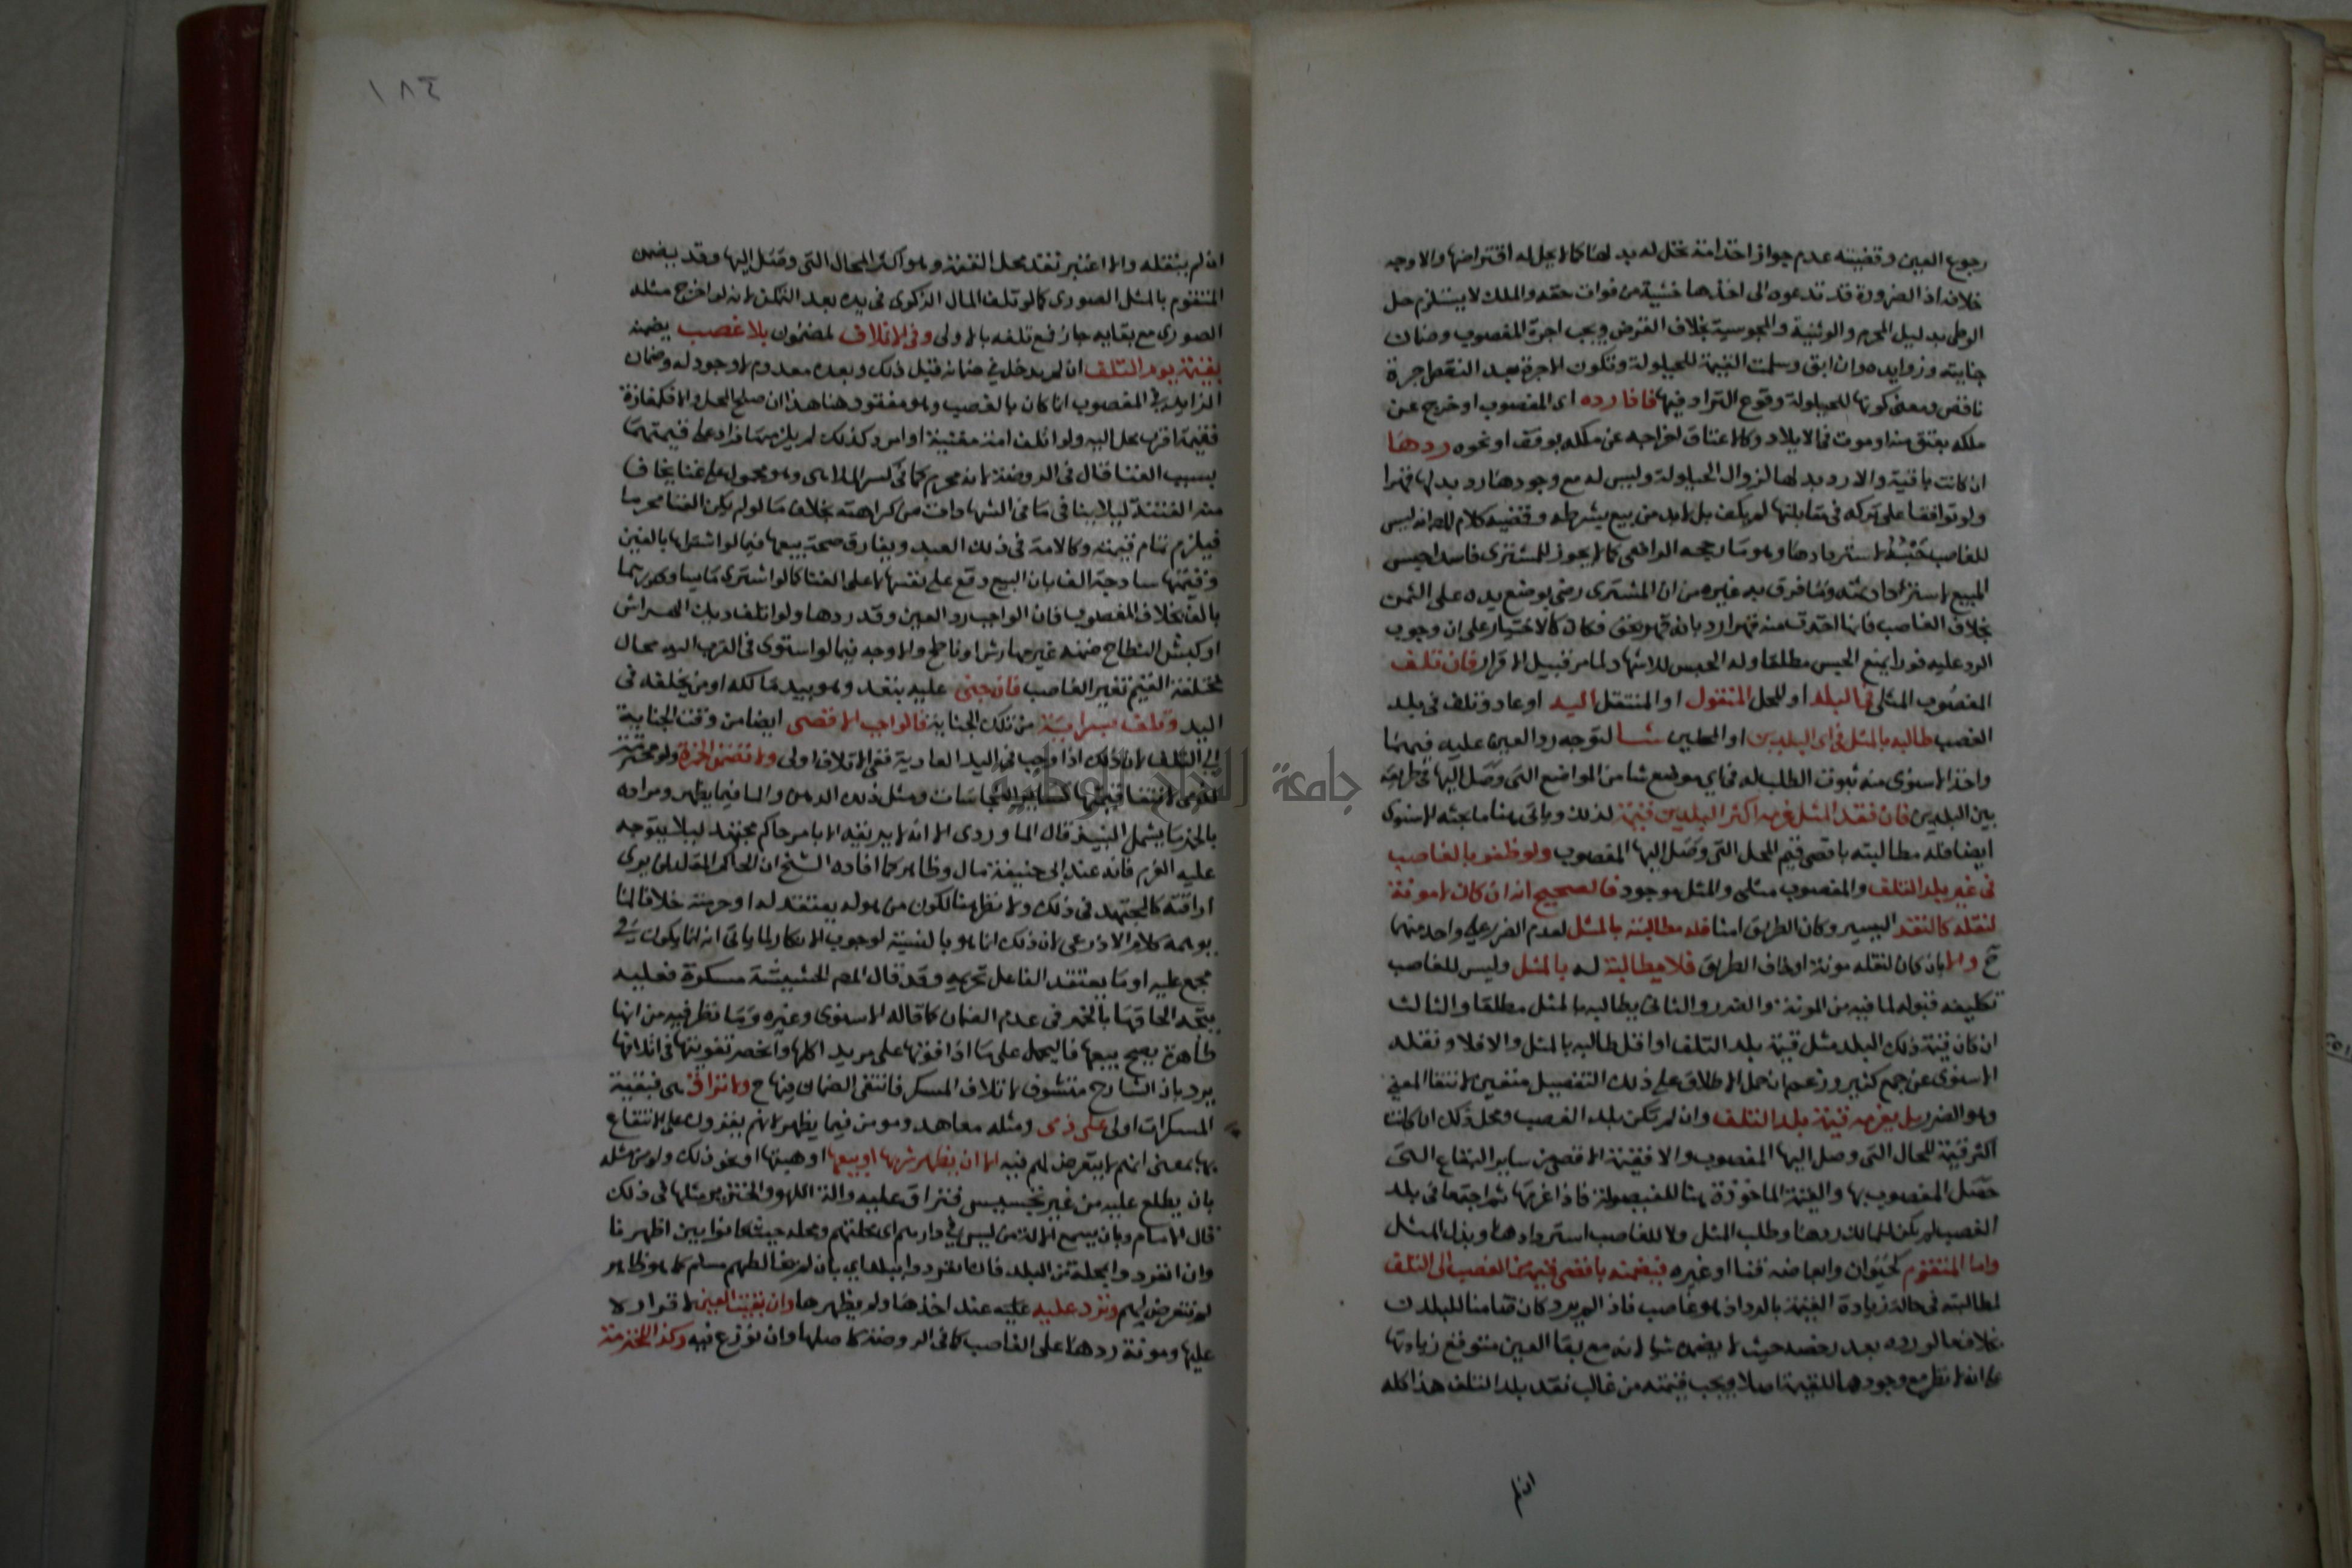 رجوع العين وقضيته عدم جواز اخذ امة تحل له بدلها كما لا يحل له اقتراضها والاوجه
خلافه اذ الضرورة قد تدعوه الى اخذها خشية من فوات حقه والملك لا يستلزم حل
الوطى بدليل المحرم والوثنية والمجوسية بخلاف القرض ويجب اجرة المغصوب وضمان
جنايته وزوايده وان ابق وسلمت القيمة للحيلولة وتكون الاجرة بعد النقص اجرة
ناقص ومعنى كونها للحيلولة وقوع التراد فيها فاذا رده اى المغصوب او خرج عن
ملكه بعتق منه او موت فى الايلاد وكالاعتاق اخراجه عن ملكه بوقف او نحوه ردها
ان كانت باقية والا رد بدلها لزوال الحيلولة وليس له مع وجودها رد بدلها قهرا
ولو توافقا على تركه فى مقابلتها لم يكف بل لابد من بيع بشرطه وقضية كلام المص انه ليس
للغاصب حبسه لاستردادها وهو ما رجحه الرافعى كما لا يجوز للمشترى فاسدا حبس
المبيع لاسترداد ثمنه وما فرق به غيره من ان المشترى رضى بوضع يده على الثمن
بخلاف الغاصب فانها اخذت منه قهرا رد بانه قهر بحق فكان كالاختيار على ان وجوب
الرد عليه فورا يمنع الحبس مطلقا وله الحبس للاشهاد لما مر قبيل الاقرار فان تلف
المغصوب المثلى فى البلد او المحل المنقول او المنتقل اليد او عاد وتلف فى بلد
الغصب طالبه بالمثل فى اى البلدين او المحلين شا لتوجه رد العين عليه فيهما
واخذ الاسنوى منه ثبوت الطلب له فى اى موضع شا من المواضع التى وصل اليها فى طريقه
بين البلدين فان فقد المثل غرمه اكثر البلدين قيمة لذلك وياتى هنا ما بحثه الاسنوى
ايضا فله مطالبته باقصى قيم المحل التى وصل اليها المغصوب ولو ظفر بالغاصب
فى غير بلد التلف والمغصوب مثلى والمثل موجود فالصحيح انه ان كان لا مونة
لنقله كالنقد اليسير وكان الطريق امنا فله مطالبته بالمثل لعدم الضرر على واحد منهما
ح والا بان كان لنقله مونة او خاف الطريق فلا مطالبة له بالمثل وليس للغاصب
تكليفه قبوله لما فيه من المونة والضرر والثانى يطالبه بالمثل مطلقا والثالث
ان كان قيمة ذلك البلد مثل قيمة بلد التلف او اقل طالبه بالمثل والا فلا ونقله
الاسنوى عن جمع كثير وزعم ان حمل الاطلاق على ذلك التفصيل متعين لانتفا المعنى
وهو الضرر بل يغرمه قيمة بلد التلف وان لم يكن بلد الغصب ومحل ذلك ان كانت
اكثر قيمة المحال التى وصل اليها المغصوب والا فقيمة الاقصى من ساير البقاع التى
حصل المغصوب بها والقيمة الماخوذة هنا للفيصولة فاذا غرمها ثم اجتمعا فى بلد
الغصب لم يكن للمالك ردها وطلب المثل ولا للغاصب استردادها وبذل المثل
واما المتقوم كحيوان وابعاضه قنا او غيره فيضمنه باقصى قيمه من الغصب الى التلف
لمطالبته فى حالة زيادة القيمة بالرد اذ هو غاصب فاذا لم يرد كان ضامنا للبدل
بخلاف ما لو رده بعد رخصه حيث لا يضمن شيا لانه مع بقا العين متوقع زيادتها
على انه لا نظر مع وجودها للقيمة اصلا ويجب قيمته من غالب نقد بلد التلف هذا كله
ان لم
١٨٤
ان لم ينقله والا اعتبر نقد محل القيمة وهو اكثر المحال التى وصل اليها وقد يضمن
المتقوم بالمثل الصورى كما لو تلف المال الزكوى فى يده بعد التمكن لانه لو اخرج مثله
الصورى مع بقايه جاز فمع تلفه بالاولى وفى الاتلاف لمضمون بلا غصب يضمنه
بقيمة يوم التلف ان لم يدخل فى ضمانه قبل ذلك وبعده معدوم لا وجود له وضمان
الزايد فى المغصوب انما كان بالغصب وهو مفقود هنا هذا ان صلح المحل والا كمفازة
فقيمة اقرب محل اليه ولو اتلف امة مغنية او امرد كذلك لم يلزمه ما زاد على قيمتهما
بسبب الغنا قال فى الروضة لانه محرم كما فى كسر الملاهى وهو محمول على غنا يخاف
منه الفتنة ليلا ينافى ما فى الشهادات من كراهته بخلاف ما لو لم يكن الغنا محرما
فيلزم تمام قيمته وكالامة فى ذلك العبد ويفارق صحة بيعها فيما لو اشتراها بالفين
وقيمتها ساذجة الف بان البيع وقع على نفسها لا على الغنا كما لو اشترى ما يساوى درهما
بالف بخلاف المغصوب فان الواجب رد العين وقد ردها ولو اتلف ديك الهراش
او كبش النطاح ضمنه غير مهارش او ناطح والاوجه فيما لو استوى فى القرب اليه محال
مختلفة القيم تخير الغاصب فان جنى عليه بتعد وهو بيد مالكه او من يخلفه فى
اليد وتلف بسراية من تلك الجناية فالواجب الاقصى ايضا من وقت الجناية
الى التلف لان ذلك اذا وجب فى اليد العادية ففى الاتلاف اولى ولا تضمن الخمرة ولو محترمة
لذمى لانتفا قيمتها كساير النجاسات ومثل ذلك الدهن والما فيما يظهر ومراده
بالخمر ما يشمل النبيذ قال الماوردى الا انه لا يريقه الا بامر حاكم مجتهد ليلا يتوجه
عليه الغرم فانه عند ابى حنيفة مال وظاهر كما افاده الشيخ ان الحاكم المقلد لمن يرى
اراقته كالمجتهد فى ذلك ولا نظر هنا لكون من هو له يعتقد له او حرمته خلافا لما
يوهمه كلام الاذرعى لان ذلك انما هو بالنسبة لوجوب الانكار لما ياتى انه انما يكون فى
مجمع عليه او ما يعتقد الفاعل تحريمه وقد قال المص الحشيشة مسكرة فعليه
يتجه الحاقها بالخمر فى عدم الضمان كما قاله الاسنوى وغيره وما نظر فيه من انها
طاهرة يصح بيعها فاليحمل على ما اذا فوتها على مريد اكلها وانحصر تفويتها فى اتلافها
يرد بان الشارح متشوف لاتلاف المسكر فانتفى الضمان فيها ح ولا تراق هى فبقية
المسكرات اولى على ذمى ومثله معاهد ومومن فيما يظهر لانهم يقرون على الانتفاع
بها بمعنى انهم لا يتعرض لهم فيه الا ان يظهر شربها او بيعها او هبتها او نحو ذلك ولو من مثله
بان يطلع عليه من غير تجسيس فتراق عليه والة اللهو والخنزير مثلها فى ذلك
قال الامام وبان يسمع الالة من ليس فى دارهم اى محلتهم ومحله حيث كانوا بين اظهرنا
وان انفردوا بمحلة من البلد فان انفردوا ببلد اى بان لم يخالطهم مسلم كما هو ظاهر
لم نتعرض لهم وترد عليه عند اخذها ولم يظهرها وان بقيت العين لاقراره
عليها ومونة ردها على الغاصب كما فى الروضة كاصلها وان نوزع فيه وكذا المحترمة
جامعة النجاح الوطنية